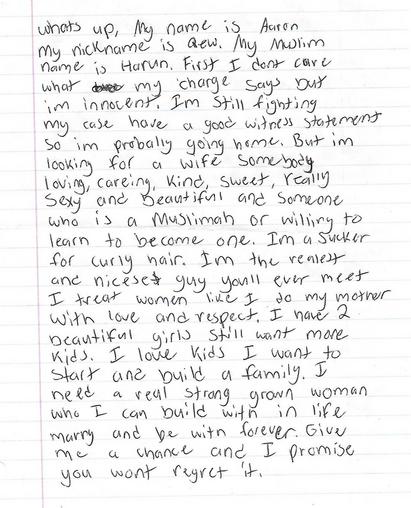 whats up, My name is Aaron
My nickname is Qew. My Muslim
name is Harun. First I dont care
what my charge says but
im innocent. Im still fighting
my case have a good witness statement
so im probally going home. But im
looking for a wife somebody
loving, careing, kind, sweet, really
sexy and beautiful and someone
who is a Muslimah or willing to
learn to become one. Im a sucker
for curly hair. Im the realest
and nicesest guy youll ever meet
I treat women like I do my mother
with love and respect. I have 2
beautiful girls still want more
kids. I love kids I want to
start and build a family. I
need a real strong grown woman
who I can build with in life
marry and be with forever. Give
me a chance and I promise
you wont regret it.